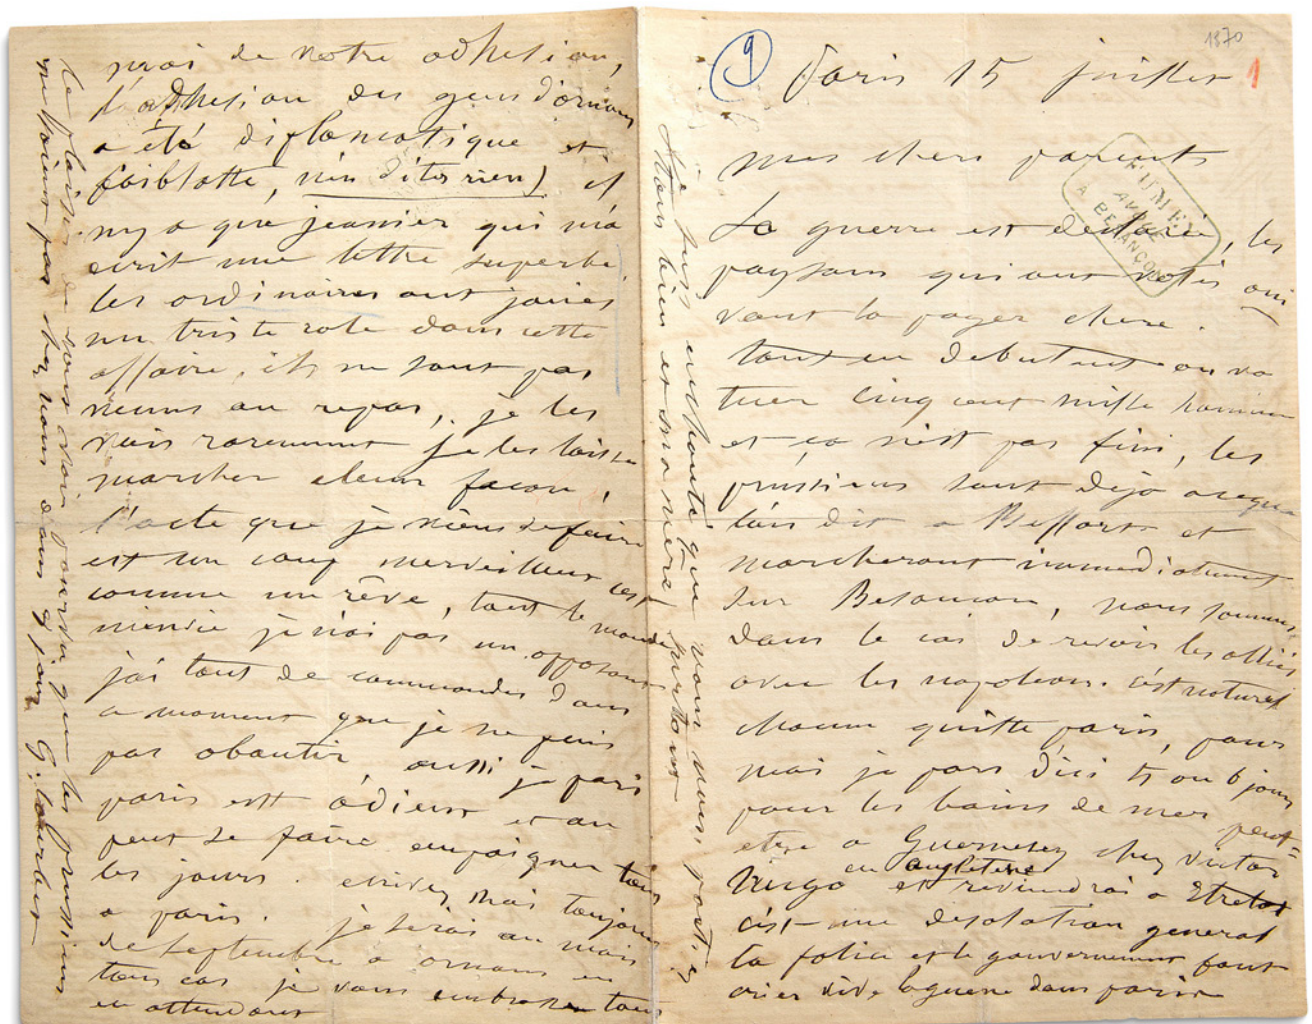 1870
9
1
Paris 15 juillet
mes chers parents
La guerre est declarée, les
paysans qui ont votés oui
vont la payer chere.
tout en debutant on va
tuer cinq cent mille hommes
et ça n'est pas fini, les
prussiens sont déja a
dit a Belfort et
marcheront immediatement
sur Besancon, nous sommes
dans le cas de revoir les alliés
avec les napoleon. c'est naturel
chacun quitte paris, pour
moi je pars d'ici 5 ou 6 jours
pour les bains de mer peut=
etre a Guernesey chez victor
hugo en angleterre et reviendrai a Etretat
c'est une desolation general
la police et le gouvernement font
crier vive la guerre dans paris
FUMEY
AVOUÉ
A BESANÇON
de notre adhesion,
l'adhesion des gens d'ornans
a été diplomatique et
faiblotte, n'en dites rien) il
n'y a que jeannier qui m'a
ecrit une lettre superbe,
les ordinaires ont joués
un triste role dans cette
affaire, ils ne sont pas
venus au repas, je les
vois rarement je les laisse
marcher a leur facon,
l'acte que je viens de faire
est un coup merveilleux c'est
comme un rêve, tout le monde
m'envie je n'ai pas un opposant
j'ai tant de commandes dans
ce moment que je ne puis
pas aboutir aussi je pars
paris est odieux et on
peut se faire empoigner tous
les jours. ecrivez moi toujours
a paris. je serai au mois
de septembre a ornans en
tous cas je vous embrasse tous
en attendant
le plaisir de vous voir pourvu que les prussiens
ne soient pas chez nous d'ans 8 jours G. Courbet
je suis enchanté que vous vous portiez
tous bien et ma mère surtout